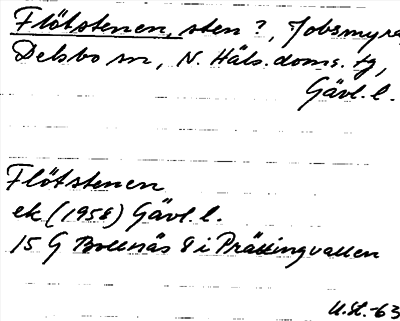 Flötstenen, sten?, Jobsmyra,
Delsbo sn, N. Häls. doms. tg,
Gävl. l.
Flötstenen
ek (1958) Gävl. l.
15 G Bollnäs 8 i Prästingvallen
U.H. -63